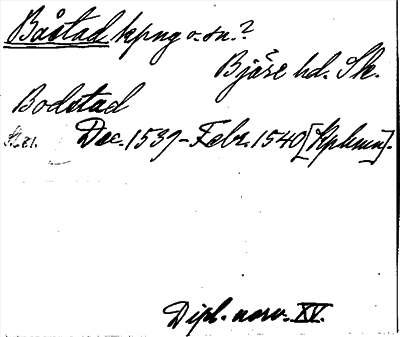 Båstad kpng o. sn.?
Bjäre hd. Sk.
Bodstad
Dec. 1539 - Febr. 1540 [Kphmn].
Dipl. norv. XV.